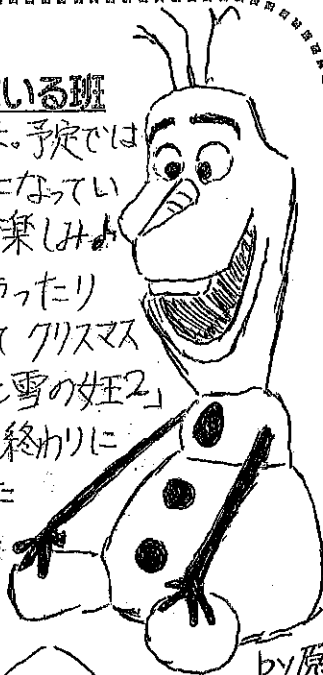 いる班
た。予定では
になってい
楽しみ♪
やったり
て クリスマス
と雪の女王2」
終わりに
た
by 原